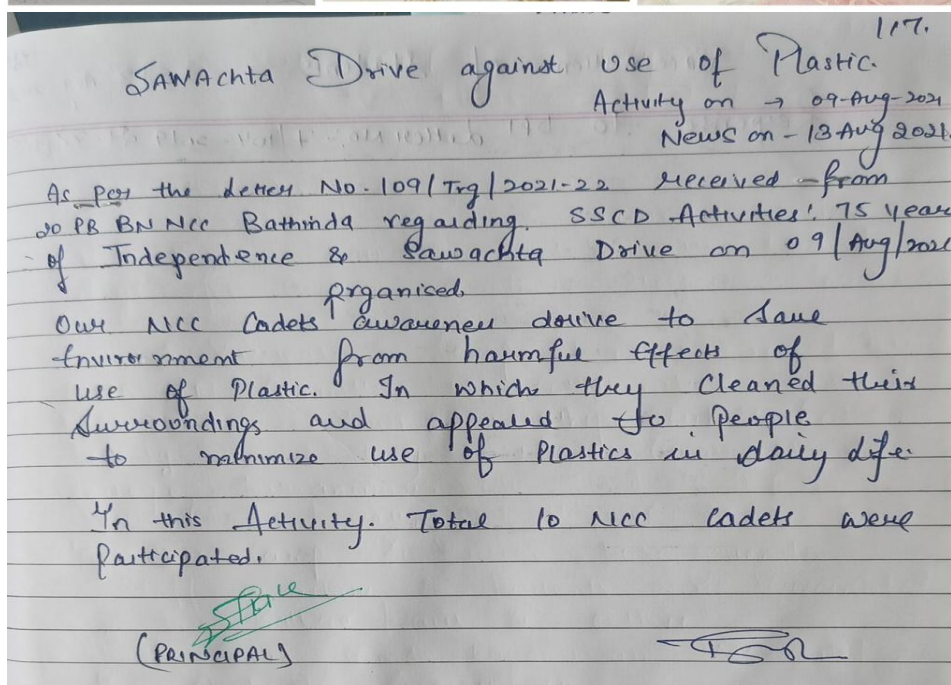 117.
SAWAchta Drive against use of Plastic.
Activity on → 09-Aug-2021
News on - 13 Aug 2021
As per the letter No. 109/Trg/2021-22 received from
20 PB BN NCC Bathinda regarding SSCD Activities! 75 year
of Independence & Sawachta Drive on 09/Aug/2021
organised
Our NCC Cadets awareness drive to save
Environment from harmful Effects of
use of Plastic. In which they Cleaned their
Surroundings and appealed to People
to minimize use of Plastics in daily life.
In this Activity. Total 10 NCC Cadets were
Participated.
(PRINCIPAL)